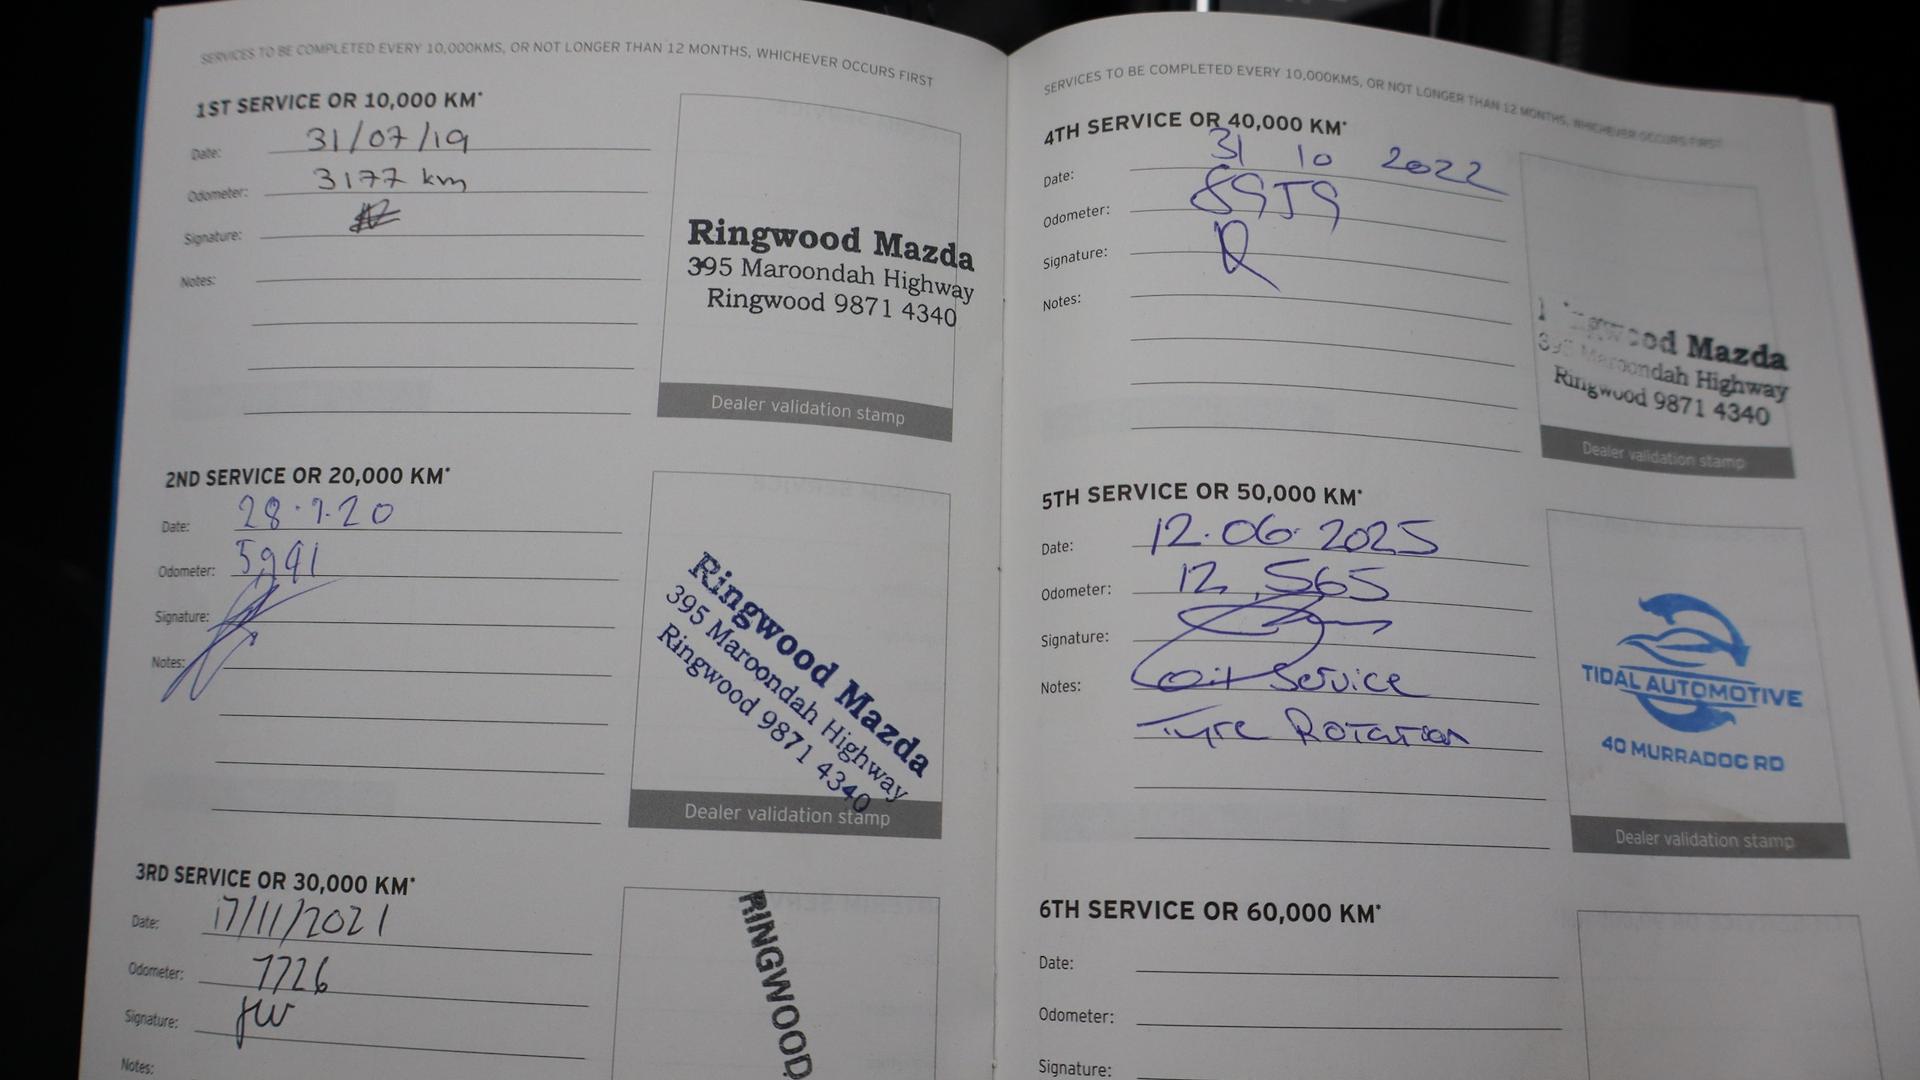 SERVICES TO BE COMPLETED EVERY 10,000KMS, OR NOT LONGER THAN 12 MONTHS, WHICHEVER OCCURS FIRST
1ST SERVICE OR 10,000 KM*
Date: 31/07/19
Odometer: 3177 km
Signature:
Notes:
Ringwood Mazda
395 Maroondah Highway
Ringwood 9871 4340
Dealer validation stamp
2ND SERVICE OR 20,000 KM*
Date: 28.7.20
Odometer: 5,991
Signature:
Notes:
Ringwood Mazda
395 Maroondah Highway
Ringwood 9871 4340
Dealer validation stamp
3RD SERVICE OR 30,000 KM*
Date: 17/11/2021
Odometer: 7726
Signature:
Notes:
RINGWOOD
SERVICES TO BE COMPLETED EVERY 10,000KMS, OR NOT LONGER THAN 12 MONTHS, WHICHEVER OCCURS FIRST
4TH SERVICE OR 40,000 KM*
Date: 31 10 2022
Odometer: 8959
Signature: R
Notes:
Ringwood Mazda
395 Maroondah Highway
Ringwood 9871 4340
Dealer validation stamp
5TH SERVICE OR 50,000 KM*
Date: 12.06.2025
Odometer: 12,565
Signature:
Notes: Oil Service
Tyre Rotation
TIDAL AUTOMOTIVE
40 MURRADOC RD
Dealer validation stamp
6TH SERVICE OR 60,000 KM*
Date:
Odometer:
Signature: